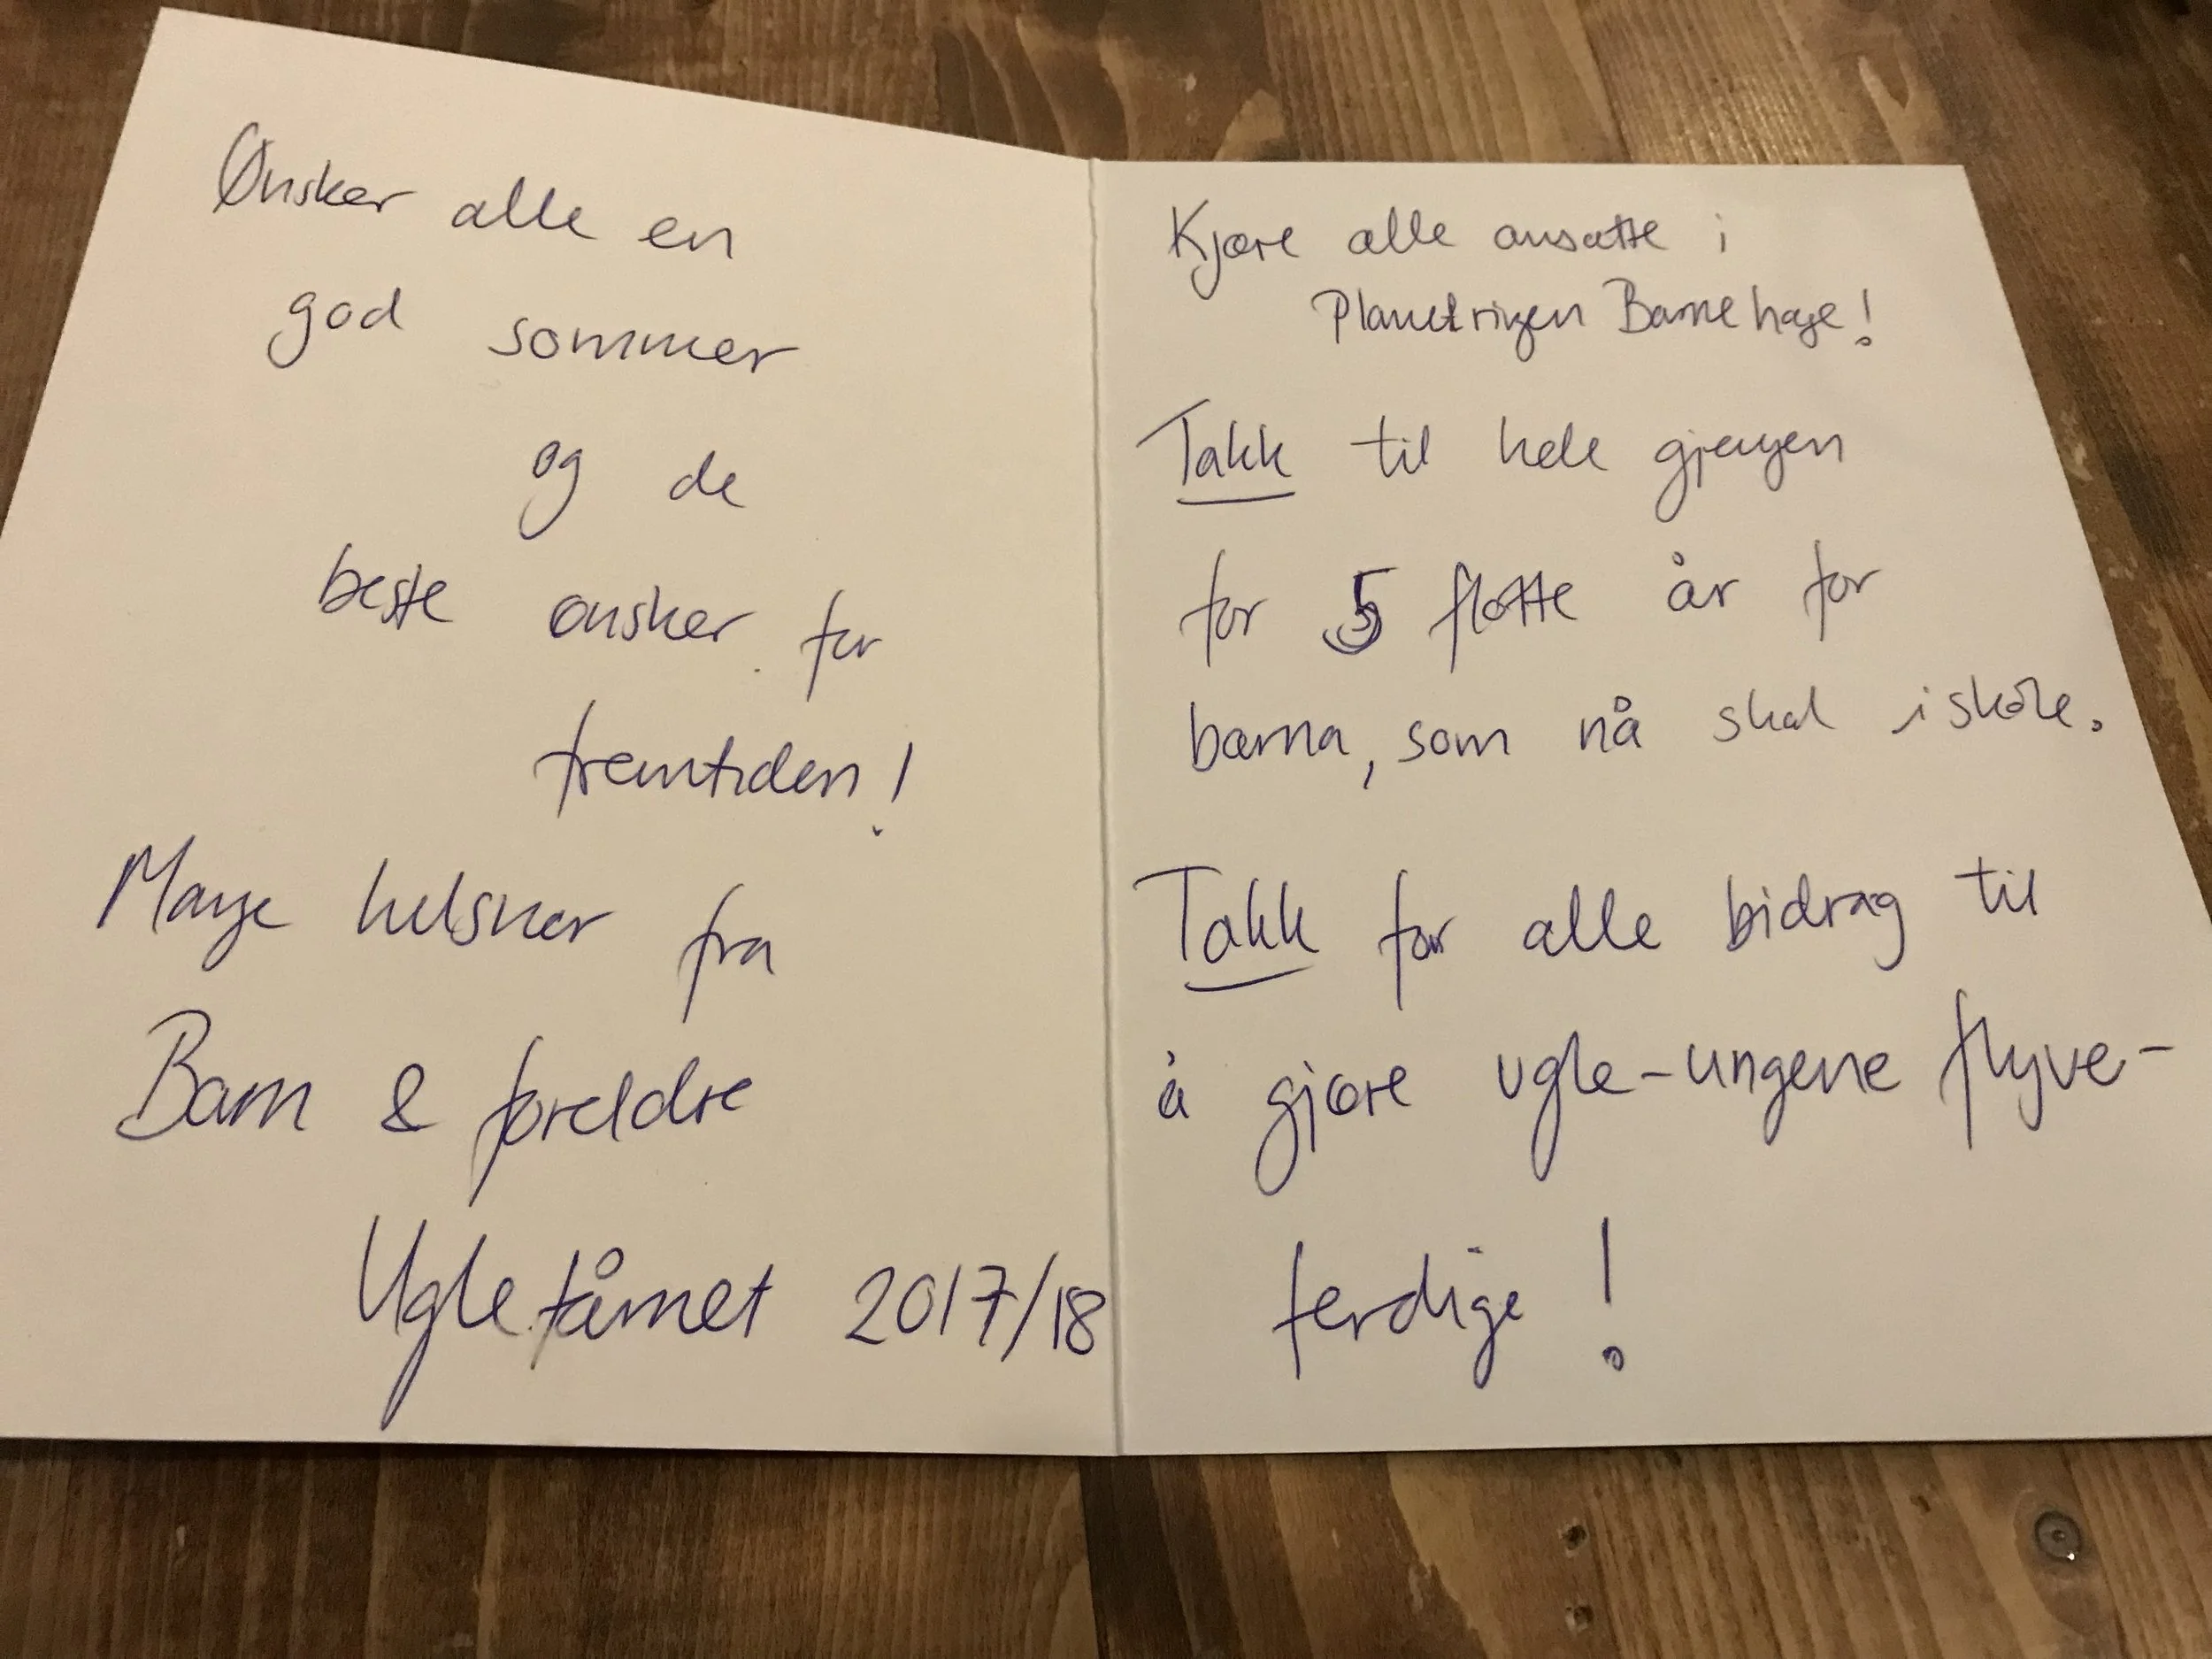 Ønsker alle en
god sommer
og de
beste ønsker for
fremtiden!
Mange hilsner fra
Barn & foreldre
Ugletårnet 2017/18
Kjære alle ansatte i
Planetringen Barnehage!
Takk til hele gjengen
for 5 flotte år for
barna, som nå skal i skole.
Takk for alle bidrag til
å gjøre ugle-ungene flyve-
ferdige!